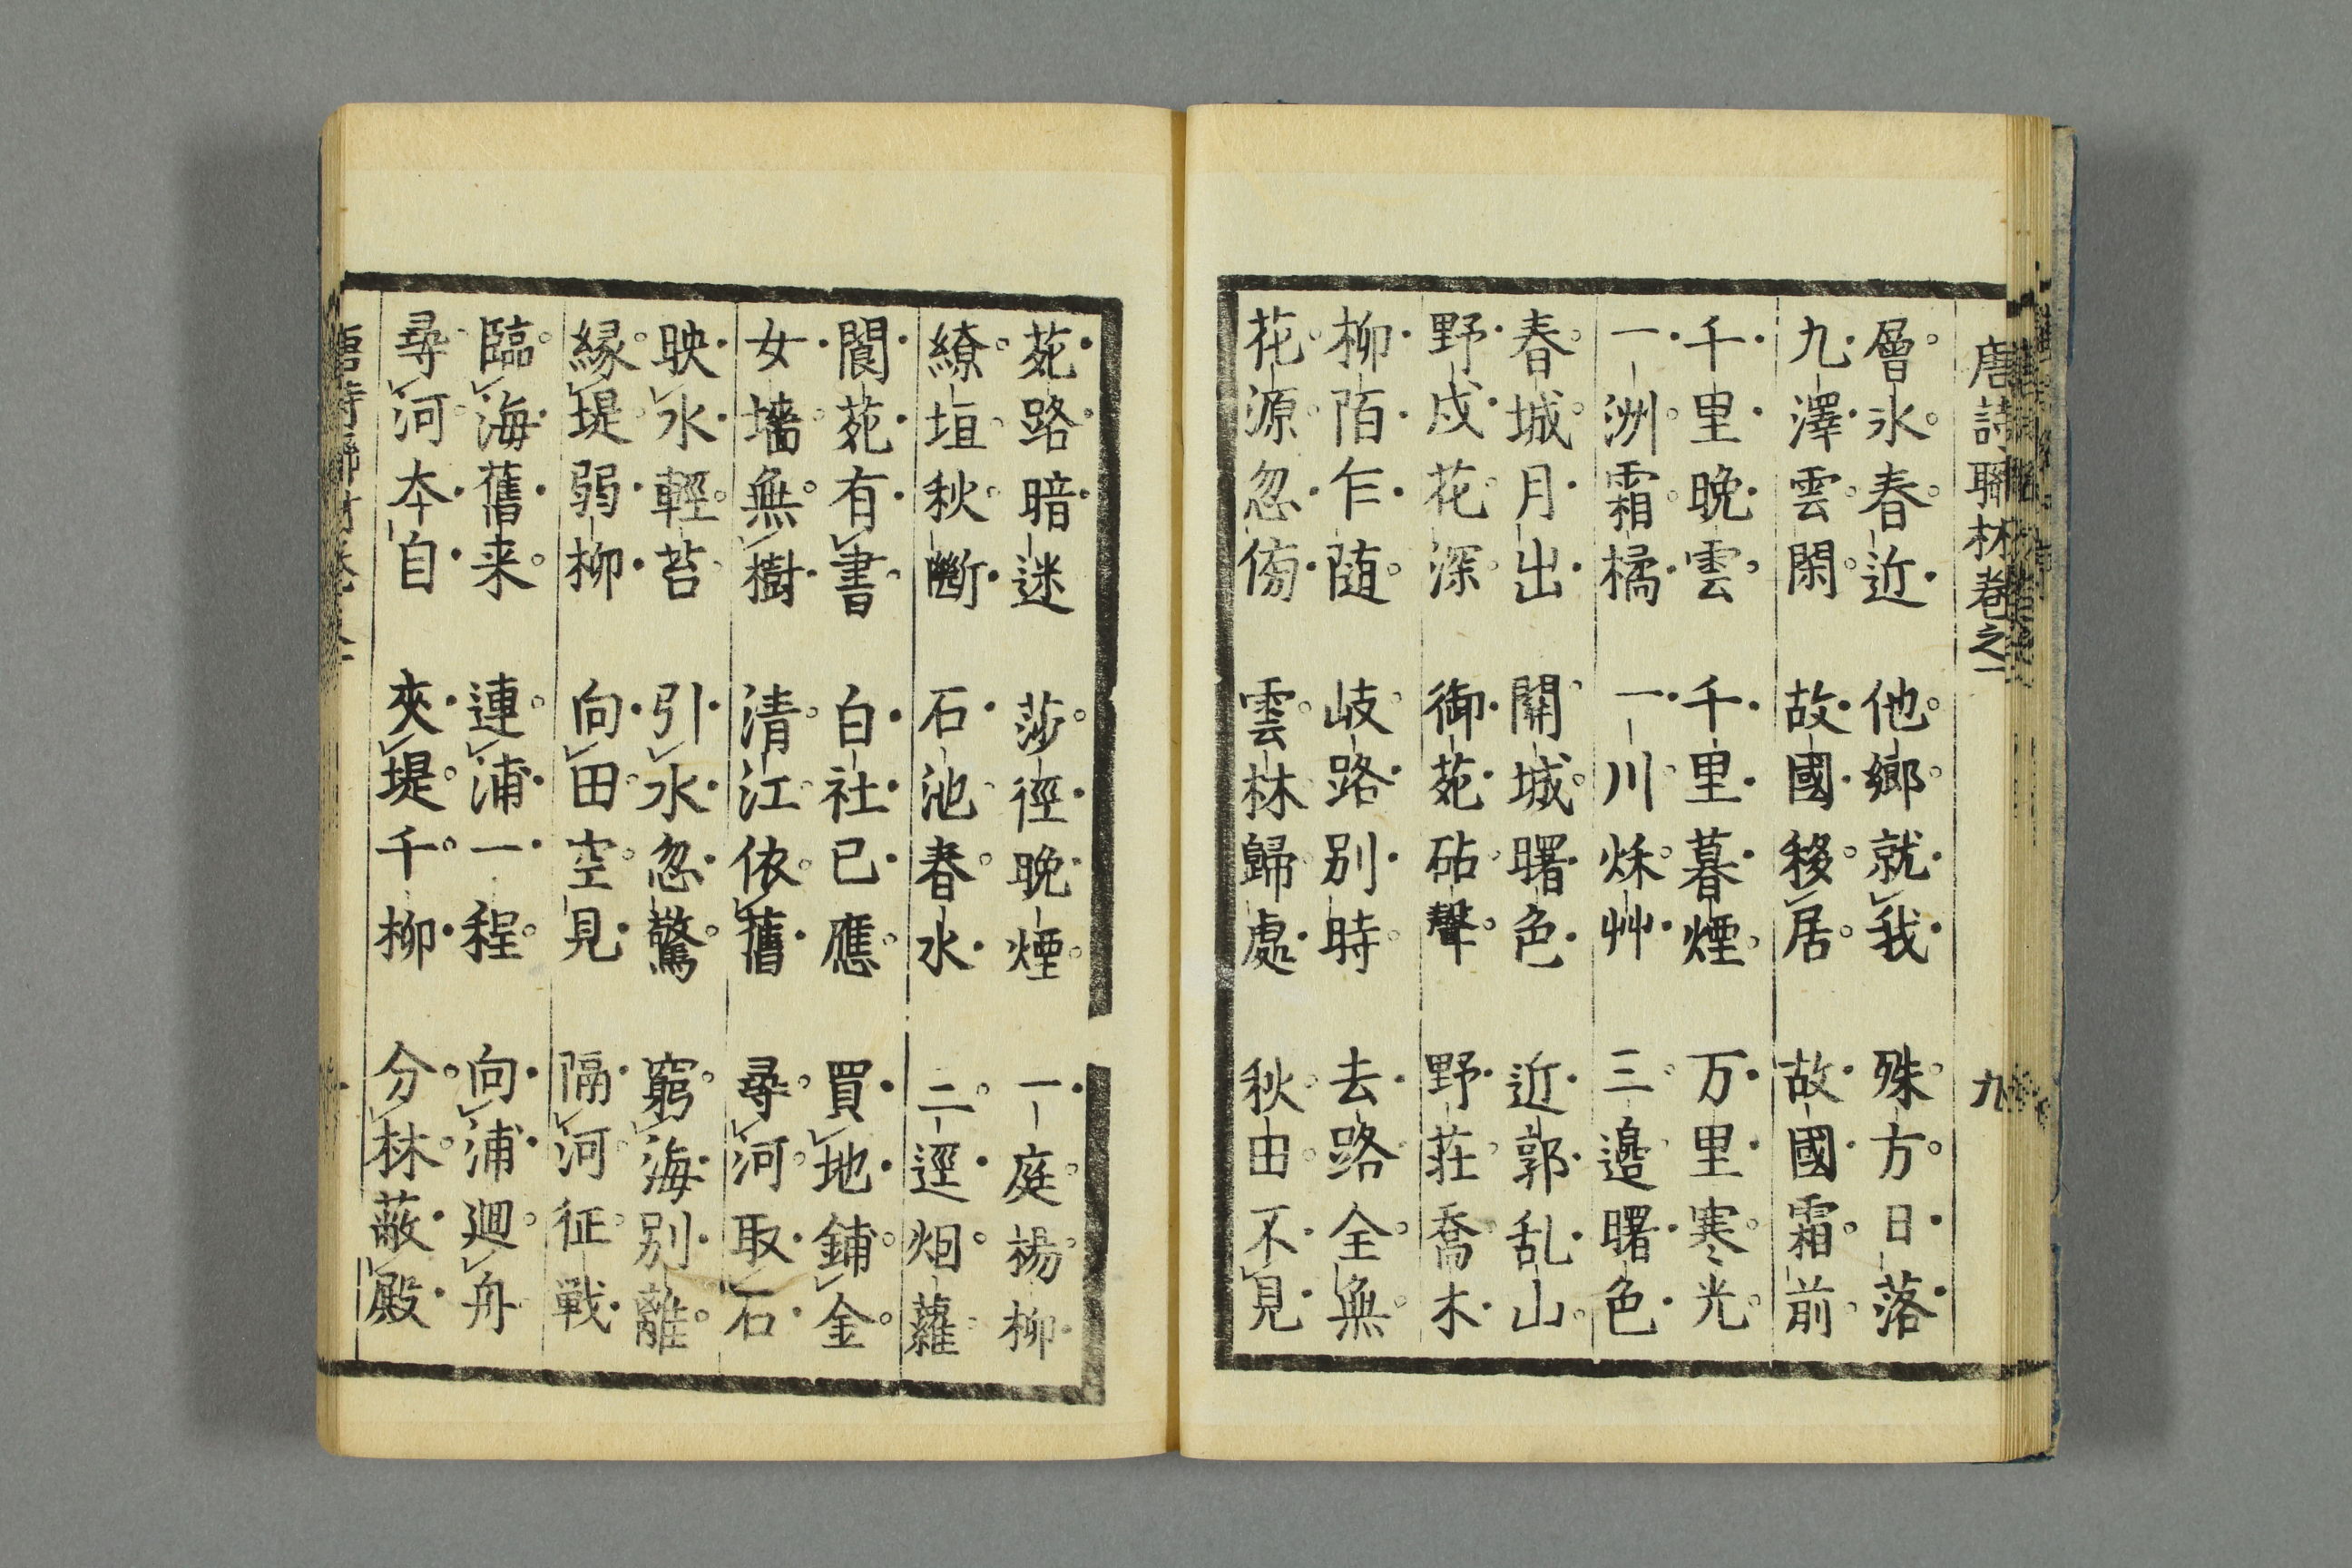 唐詩聯材卷之一 九
層氷春近 他鄉就我 殊方日落
九澤雲閑 故國移居 故國霜前
千里晚雲 千里暮煙 万里寒光
一洲霜橘 一川秌艸 三邉曙色
春城月出 關城曙色 近郭乱山
野戍花深 御苑砧聲 野荘喬木
柳陌乍随 岐路別時 去路全無
花源忽傍 雲林歸處 秋由不見
苑路暗迷 莎徑晚煙 一庭楊柳
繚垣秋斷 石池春水 二逕烟蘿
閬苑有書 白社已應 買地鋪金
女墻無樹 清江依舊 尋河取石
映水輕苔 引水忽驚 窮海別離
縁堤弱柳 向田空見 隔河征戰
臨海舊来 連浦一程 向浦廻舟
尋河本自 夾堤千柳 分林蔽殿